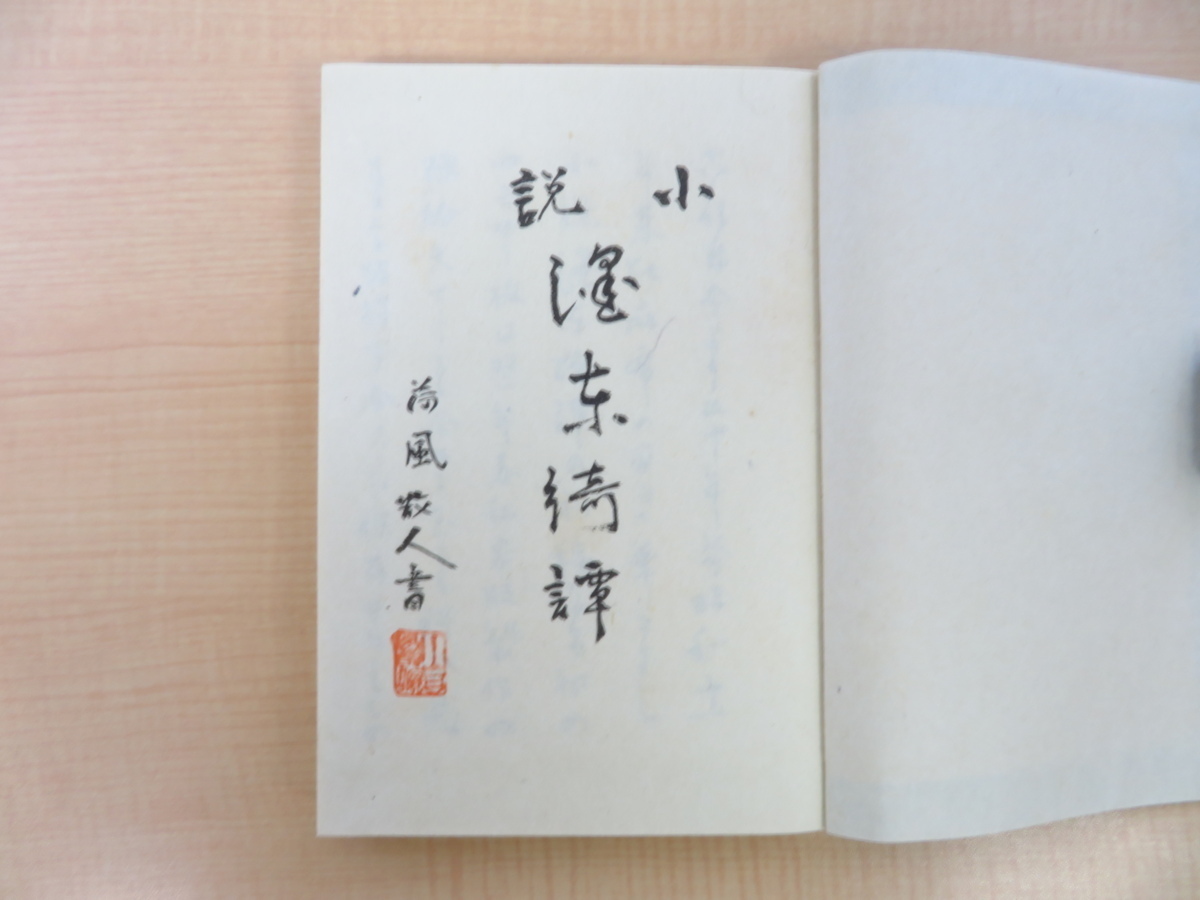 小説
濹东綺譚
荷風散人書